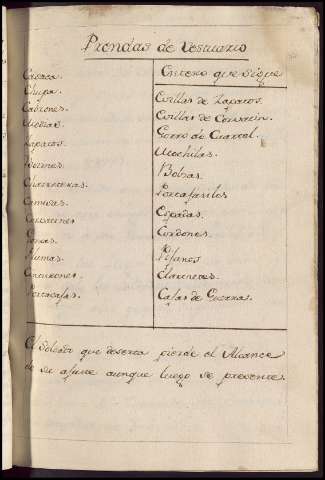 Prendas de Vestuario
Casaca.
Chupa.
Calzones.
Medias
Zapatos
Botines
Charreteras.
Camisas.
Corbatines
Gorras.
Plumas.
Cinturones.
Portacajas.
Entrero que Sigue
Evillas de Zapatos.
Evillas de Corvatin.
Gorro de Quartel.
Mochilas.
Bolsas.
Portafusiles
Espadas.
Cordones.
Pifanos
Clarinetes.
Cajas de Guerra.
El Soldado que deserta pierde el Alcance
de su ajuste aunque luego se presente.